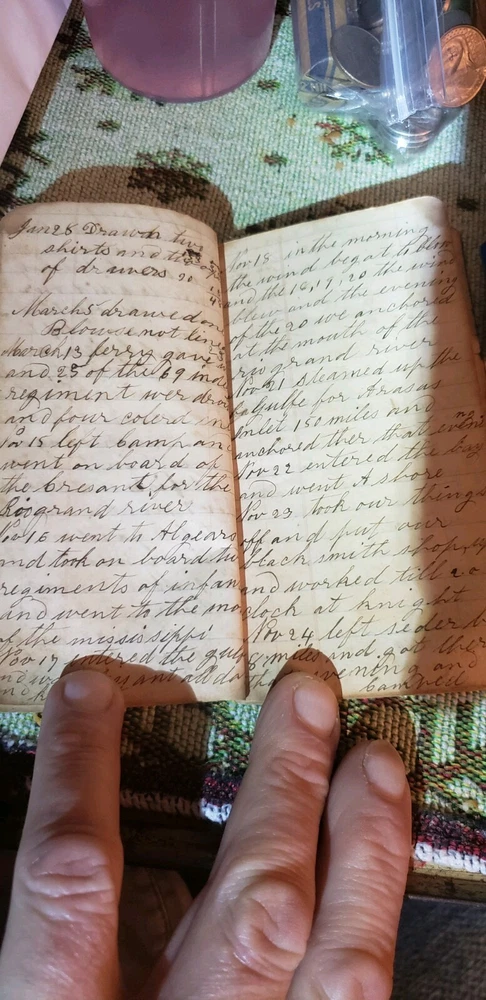 Jan 28 Drawen two
shirts and two
of drawers 20
March 5 drawed one
Blowse not lined
March 13 ferry gave
and 23 of the 69 ind
regiment wer drow
and four colerd
Nov 15 left Camp an
went on board of
the Cresant for the
Riogrand river
Nov 16 went to Algears
and took on board the
regiments of infan
and went to the mo
of the mississippi
Nov 17 entered the gulf
any and all da
Nov 18 in the morning
the wind began to blow
and the 18, 19, 20 the wind
blew and the evening
of the 20 we anchored
at the mouth of the
grand river
Nov 21 steamed up the
for Arasas
inlet 150 miles and
anchored ther that evening
Nov 22 entered the bay
and went A shore
Nov 23 took our things
off and put our
black smith shop up
and worked till 2 o
clock at knight
Nov 24 left
8 miles and got ther
the evening and
Camped